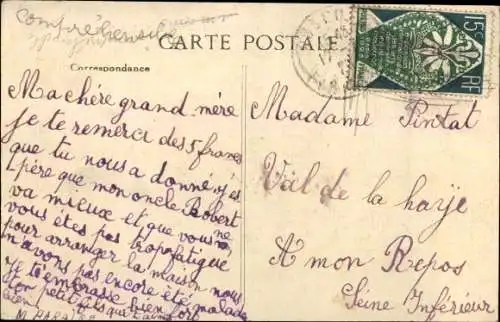 comprehensible
CARTE POSTALE
Correspondance
15c RF
Ma chère grand-mère
je te remerci des 5 francs
que tu nous a donné j'es
père que mon oncle Robert
va mieux et que vous ne
vous êtes pas trop fatigué
pour arranger la maison nous
n'avons pas encore été malade
Je t'embrasse bien fort
ton petit fils qui t'aime
bien
Madame Pintat
Val de la haÿe
A mon Repos
Seine Inférieur